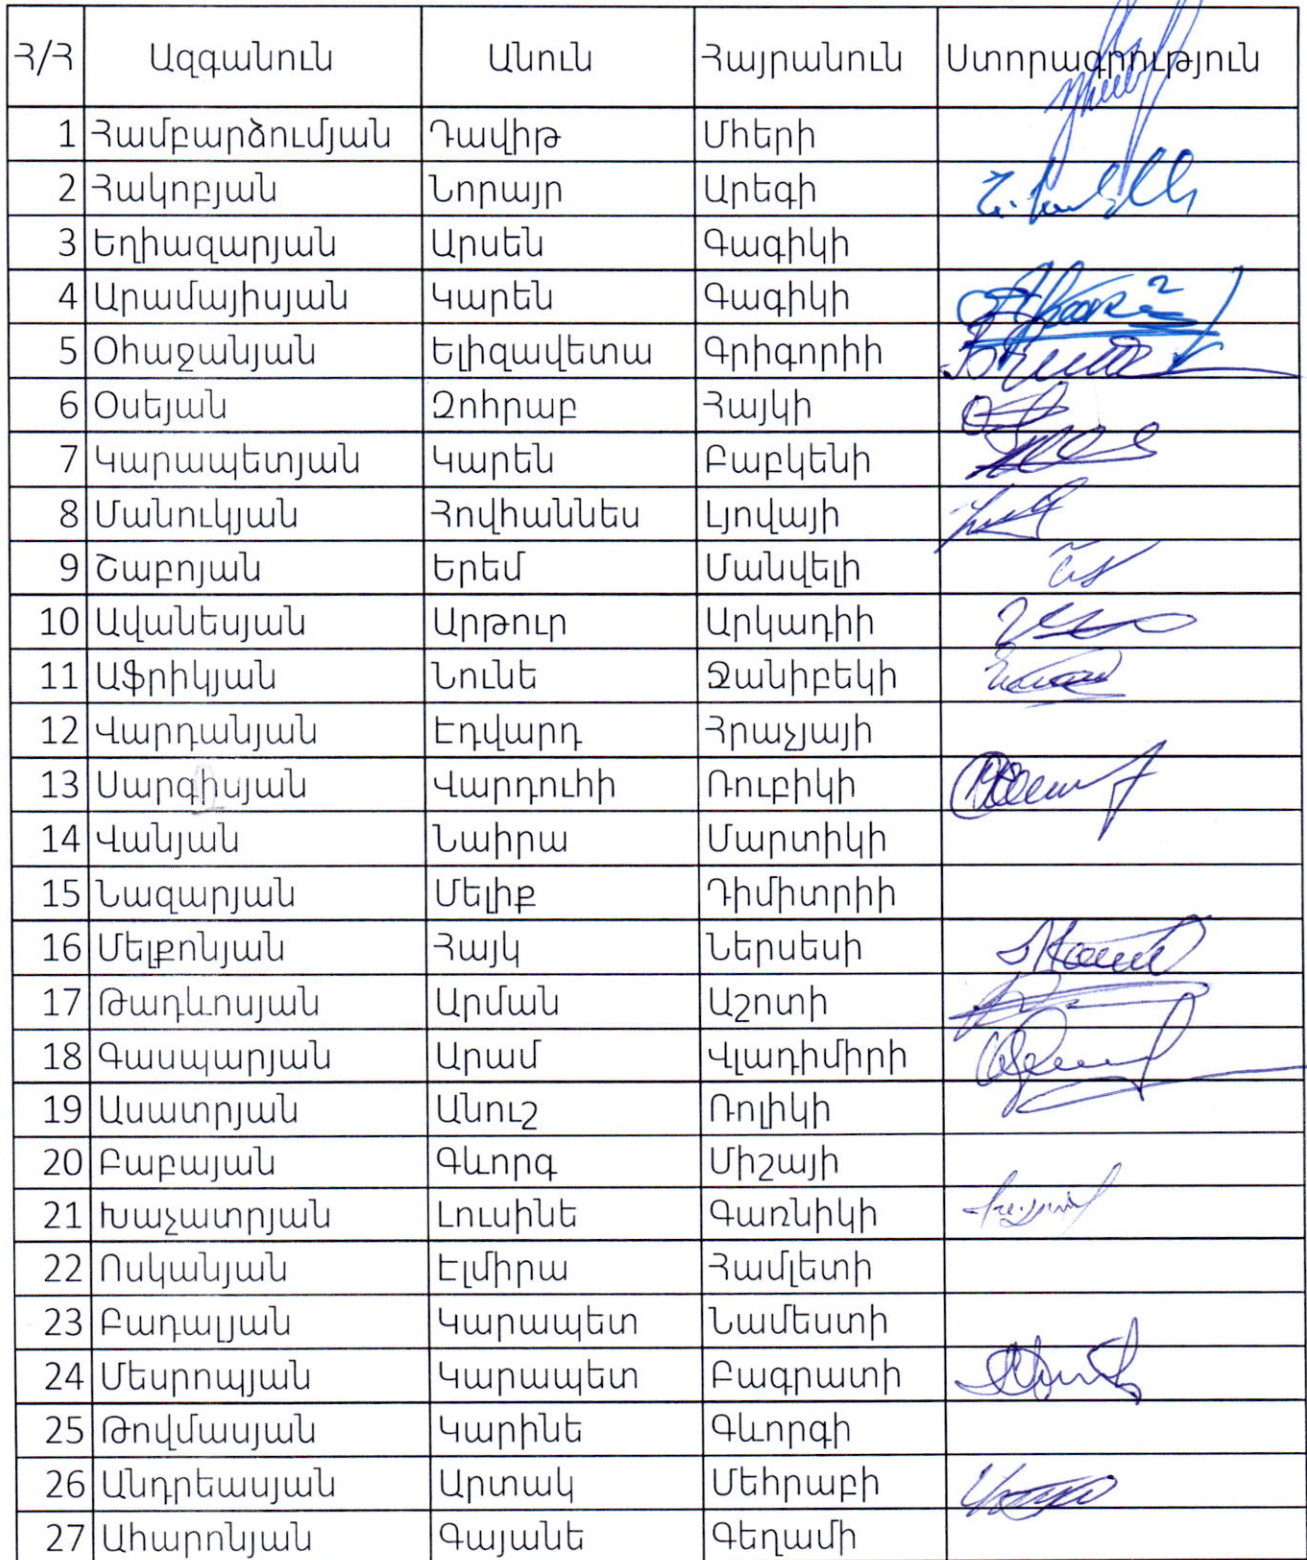 Հ/Հ Ազգանուն Անուն Հայրանուն Ստորագրություն
1 Համբարձումյան Դավիթ Մհերի
2 Հակոբյան Նորայր Արեգի
3 Եղիազարյան Արսեն Գագիկի
4 Արամայիսյան Կարեն Գագիկի
5 Օհաջանյան Ելիզավետա Գրիգորիի
6 Օսեյան Զոհրաբ Հայկի
7 Կարապետյան Կարեն Բաբկենի
8 Մանուկյան Հովհաննես Լյովայի
9 Շաբոյան Երեմ Մանվելի
10 Ավանեսյան Արթուր Արկադիի
11 Աֆրիկյան Նունե Ջանիբեկի
12 Վարդանյան Էդվարդ Հրաչյայի
13 Սարգիսյան Վարդուհի Ռուբիկի
14 Վանյան Նաիրա Մարտիկի
15 Նազարյան Մելիք Դիմիտրիի
16 Մելքոնյան Հայկ Ներսեսի
17 Թադևոսյան Արման Աշոտի
18 Գասպարյան Արամ Վլադիմիրի
19 Ասատրյան Անուշ Ռոլիկի
20 Բաբայան Գևորգ Միշայի
21 Խաչատրյան Լուսինե Գառնիկի
22 Ոսկանյան Էլմիրա Համլետի
23 Բադալյան Կարապետ Նամեստի
24 Մեսրոպյան Կարապետ Բագրատի
25 Թովմասյան Կարինե Գևորգի
26 Անդրեասյան Արտակ Մեհրաբի
27 Ահարոնյան Գայանե Գեղամի